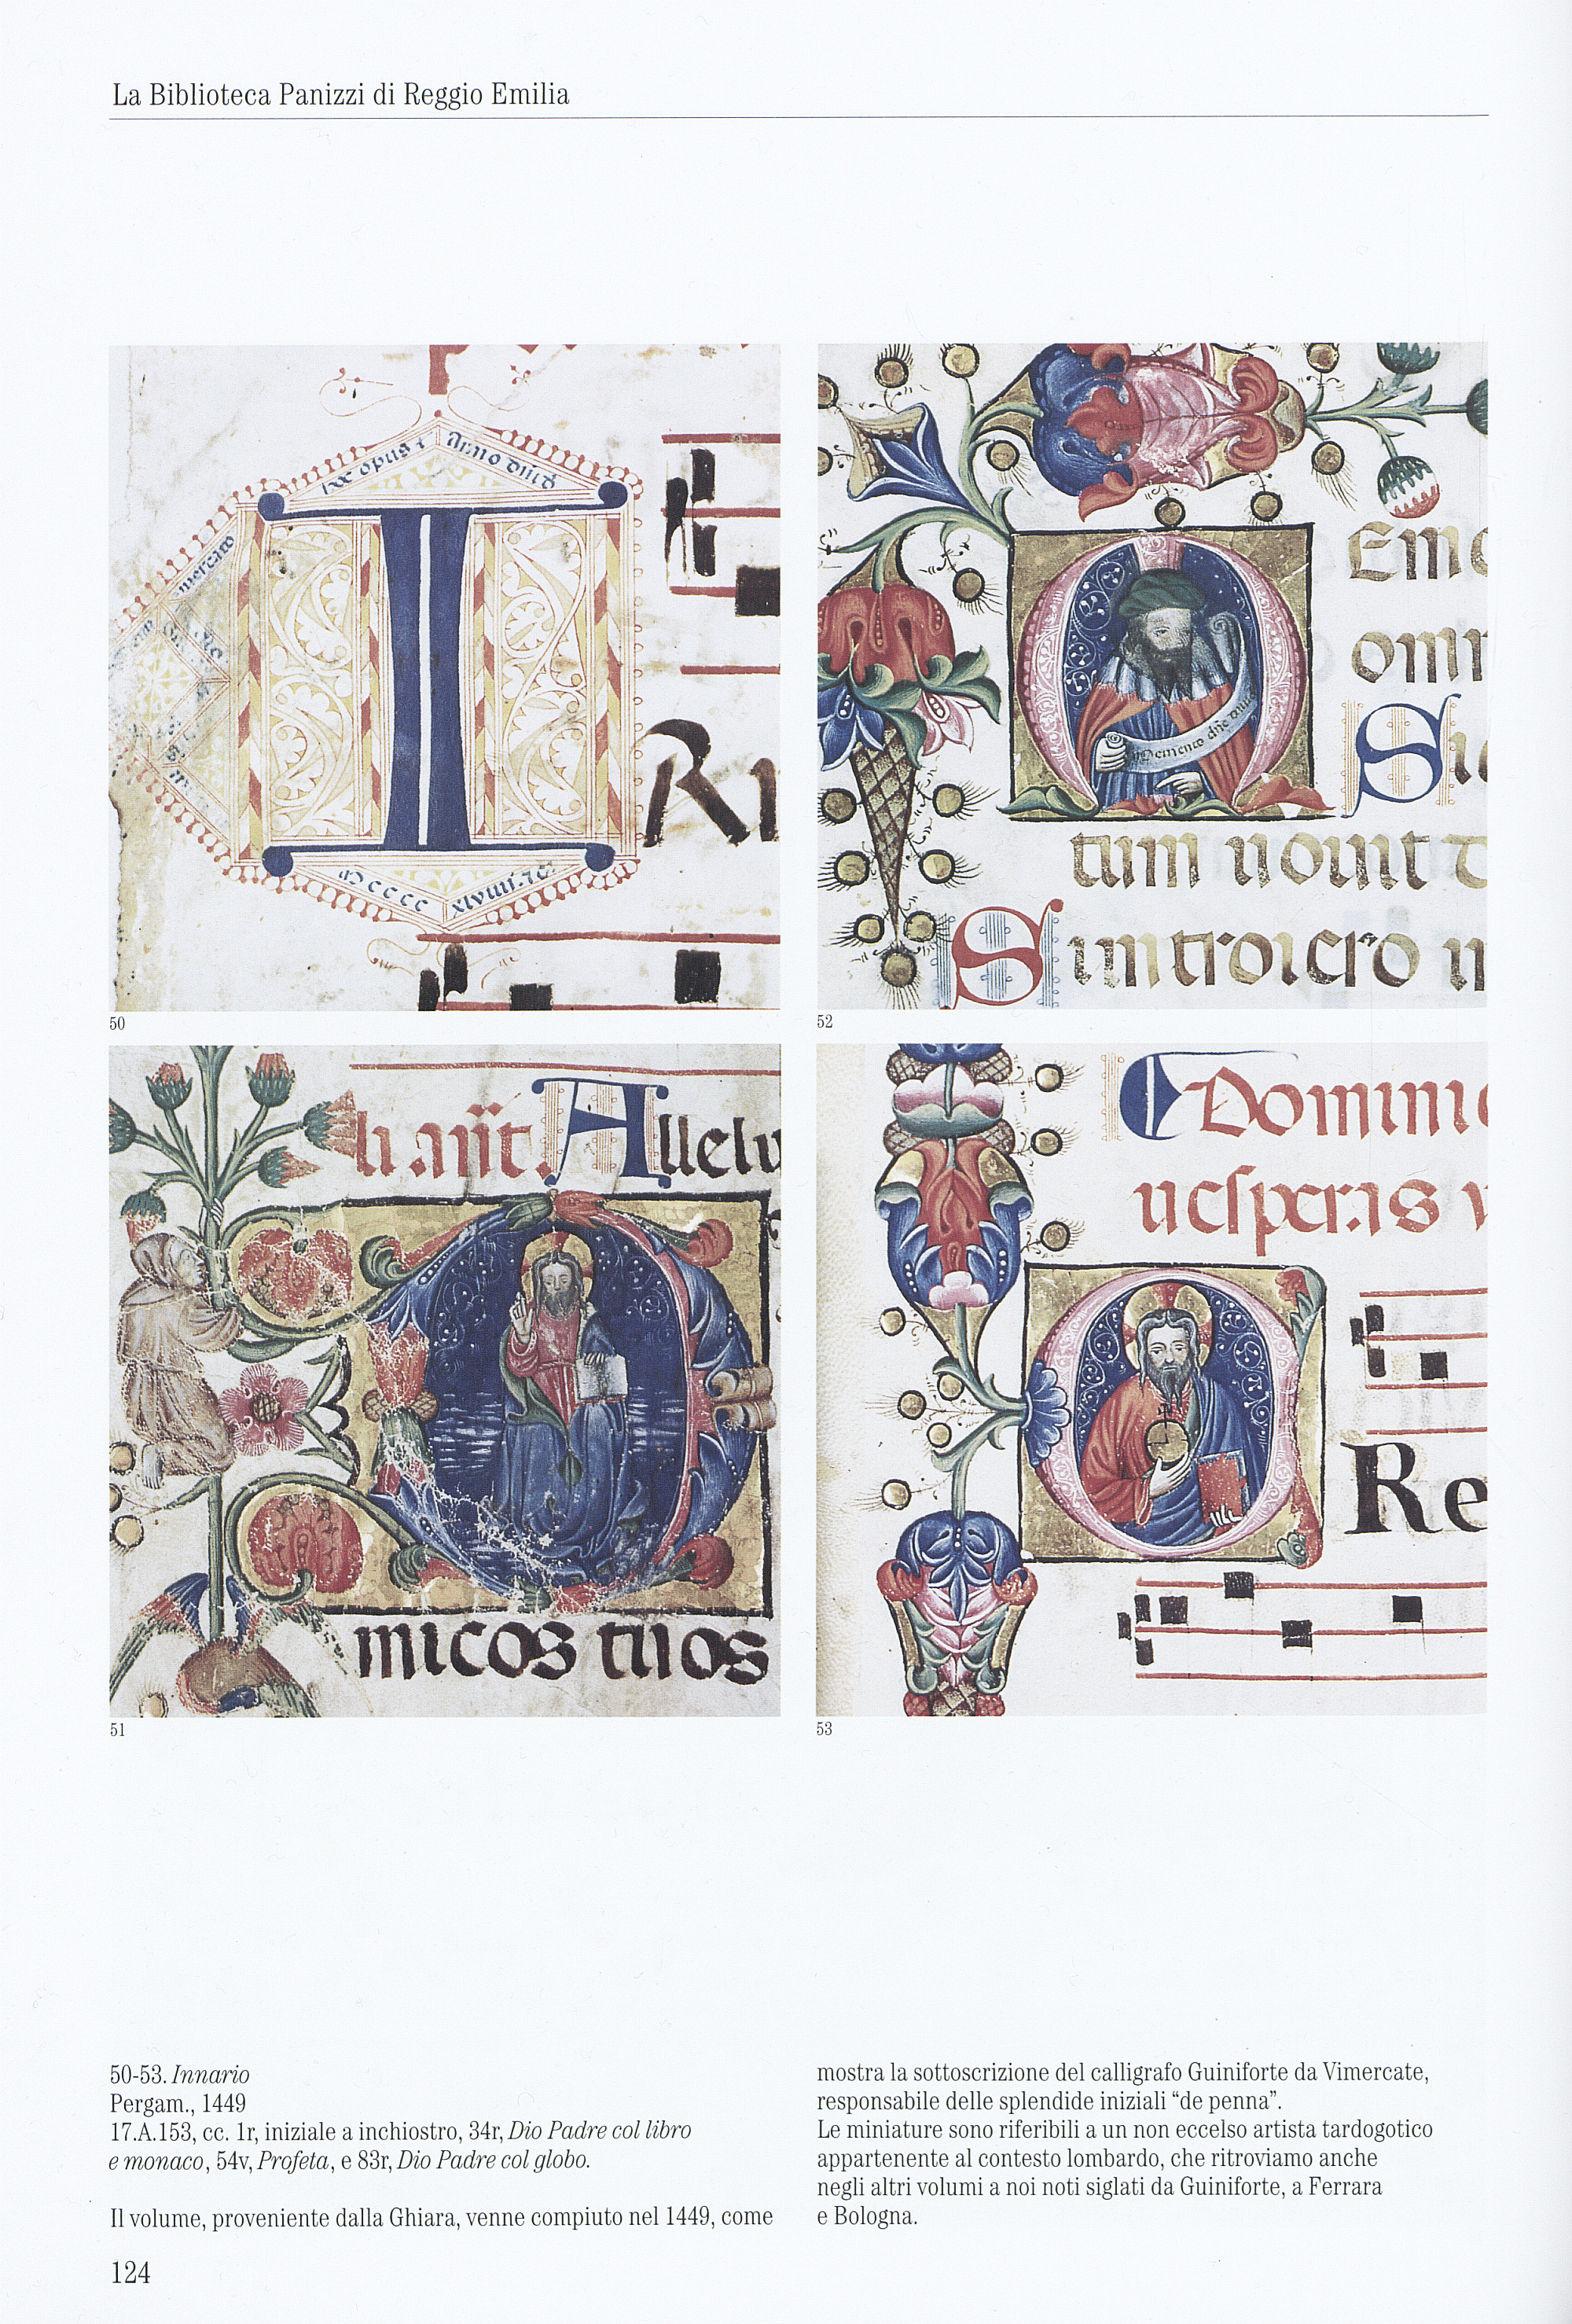 La Biblioteca Panizzi di Reggio Emilia
opus
Anno
mercato
Mcccc
xlviiii
Ri
50
Emε
omn
Memento
Sic
tum nouit
Si introiero in
52
li. ant. Allelu
micos tuos
51
Dominic
uesperas
Re
53
50-53. Innario
Pergam., 1449
17.A.153, cc. 1r, iniziale a inchiostro, 34r, Dio Padre col libro
e monaco, 54v, Profeta, e 83r, Dio Padre col globo.
Il volume, proveniente dalla Ghiara, venne compiuto nel 1449, come
mostra la sottoscrizione del calligrafo Guiniforte da Vimercate,
responsabile delle splendide iniziali “de penna”.
Le miniature sono riferibili a un non eccelso artista tardogotico
appartenente al contesto lombardo, che ritroviamo anche
negli altri volumi a noi noti siglati da Guiniforte, a Ferrara
e Bologna.
124